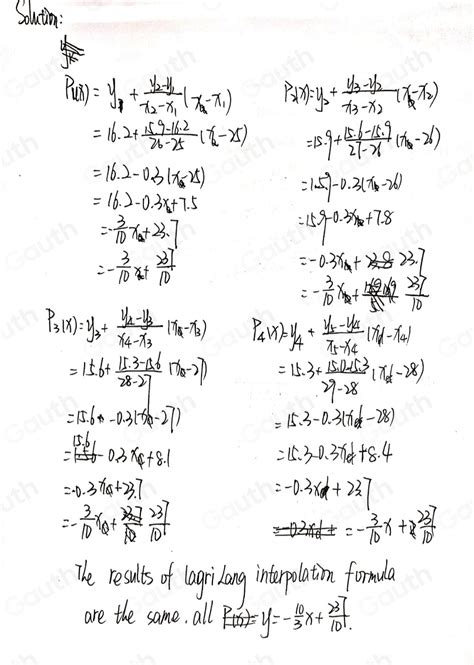 Solution:
P₁(x) = y₁ + (y₂-y₁)/(x₂-x₁) (x-x₁)
= 16.2 + (15.9-16.2)/(26-25) (x-25)
= 16.2-0.3(x-25)
= 16.2-0.3x+7.5
= -3/10 x+23.7
= -3/10 x+ 237/10
P₂(x)=y₂+ (y₃-y₂)/(x₃-x₂) (x-x₂)
=15.9+ (15.6-15.9)/(27-26) (x-26)
=15.9-0.3(x-26)
=15.9-0.3x+7.8
=-0.3x+ 23.7
=-3/10 x+ 237/10
P₃(x)=y₃+ (y₄-y₃)/(x₄-x₃) (x-x₃)
=15.6+ (15.3-15.6)/(28-27) (x-27)
=15.6-0.3(x-27)
=15.6-0.3x+8.1
=-0.3x+23.7
=-3/10 x+ 237/10
P₄(x)=y₄+ (y₅-y₄)/(x₅-x₄) (x-x₄)
=15.3+ (15.0-15.3)/(29-28) (x-28)
=15.3-0.3(x-28)
=15.3-0.3x+8.4
=-0.3x+23.7
=-3/10 x+ 237/10
The results of lagriLang interpolation formula
are the same. all y=-10/3 x+ 237/10.